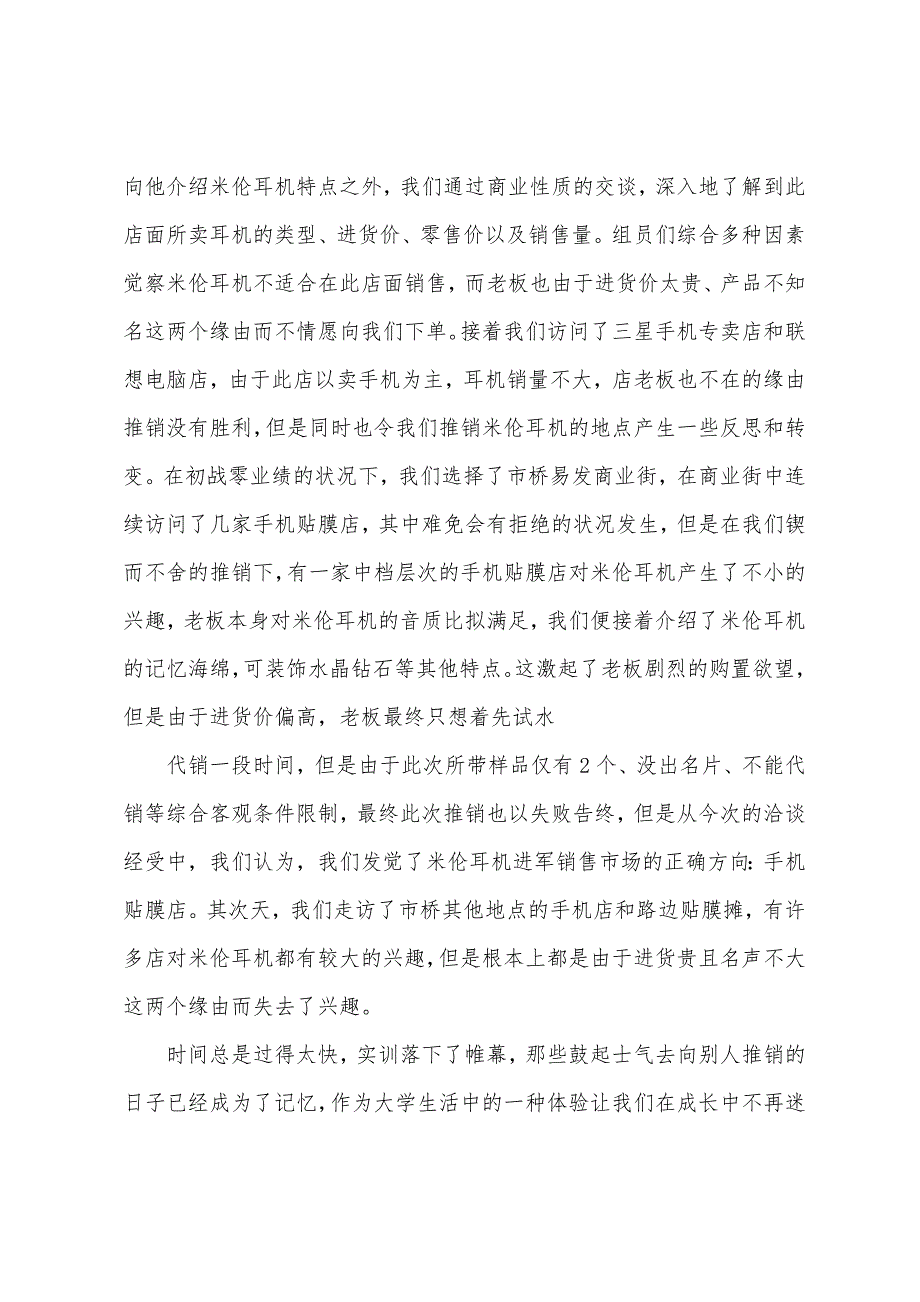 向他介绍米伦耳机特点之外，我们通过商业性质的交谈，深入地了解到此
店面所卖耳机的类型、进货价、零售价以及销售量。组员们综合多种因素
觉察米伦耳机不适合在此店面销售，而老板也由于进货价太贵、产品不知
名这两个缘由而不情愿向我们下单。接着我们访问了三星手机专卖店和联
想电脑店，由于此店以卖手机为主，耳机销量不大，店老板也不在的缘由
推销没有胜利，但是同时也令我们推销米伦耳机的地点产生一些反思和转
变。在初战零业绩的状况下，我们选择了市桥易发商业街，在商业街中连
续访问了几家手机贴膜店，其中难免会有拒绝的状况发生，但是在我们锲
而不舍的推销下，有一家中档层次的手机贴膜店对米伦耳机产生了不小的
兴趣，老板本身对米伦耳机的音质比拟满足，我们便接着介绍了米伦耳机
的记忆海绵，可装饰水晶钻石等其他特点。这激起了老板剧烈的购置欲望，
但是由于进货价偏高，老板最终只想着先试水
代销一段时间，但是由于此次所带样品仅有2个、没出名片、不能代
销等综合客观条件限制，最终此次推销也以失败告终，但是从今次的洽谈
经受中，我们认为，我们发觉了米伦耳机进军销售市场的正确方向：手机
贴膜店。其次天，我们走访了市桥其他地点的手机店和路边贴膜摊，有许
多店对米伦耳机都有较大的兴趣，但是根本上都是由于进货贵且名声不大
这两个缘由而失去了兴趣。
时间总是过得太快，实训落下了帷幕，那些鼓起士气去向别人推销的
日子已经成为了记忆，作为大学生活中的一种体验让我们在成长中不再迷